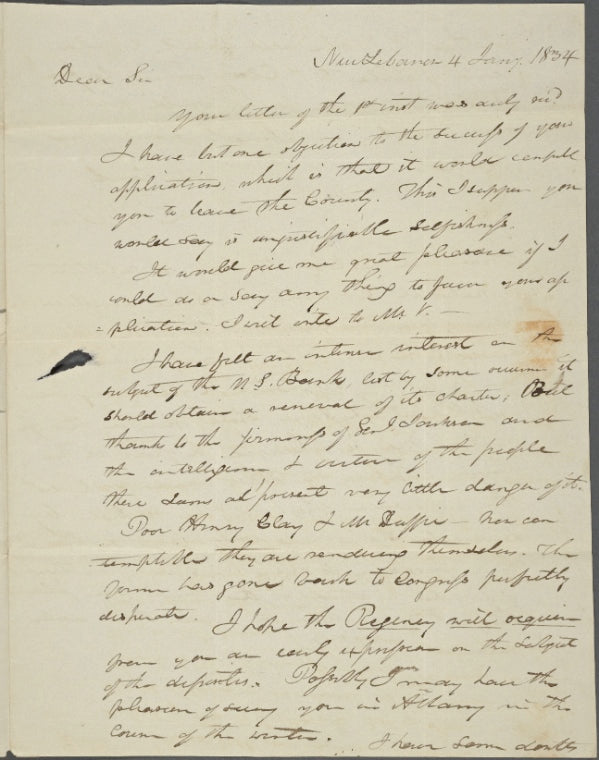 New Lebanon 4 Jany. 1834
Dear Sir
Your letter of the 1st inst was duly recd
I have but one objection to the success of your
application, which is that it would compell
you to leave the County. This I suppose you
would say is unjustifiable selfishness.
It would give me great pleasure if I
could do or say any thing to favor your ap
=plication. I will write to Mr. V. —
I have felt an intense interest on the
subject of the U S. Bank, lest by some means it
should obtain a renewal of its charter; But
thanks to the firmness of Genl. Jackson and
the intelligence & virtue of the people
there seems at present very little danger of it.
Poor Henry Clay & McDuffie — how con
temptible they are rendering themselves. The
former has gone back to Congress perfectly
desperate.
I hope the Regency will require
from you an early expression on the subject
of the deposites. Possibly I may have the
pleasure of seeing you in Albany in the
course of the winter.
I have some doubts